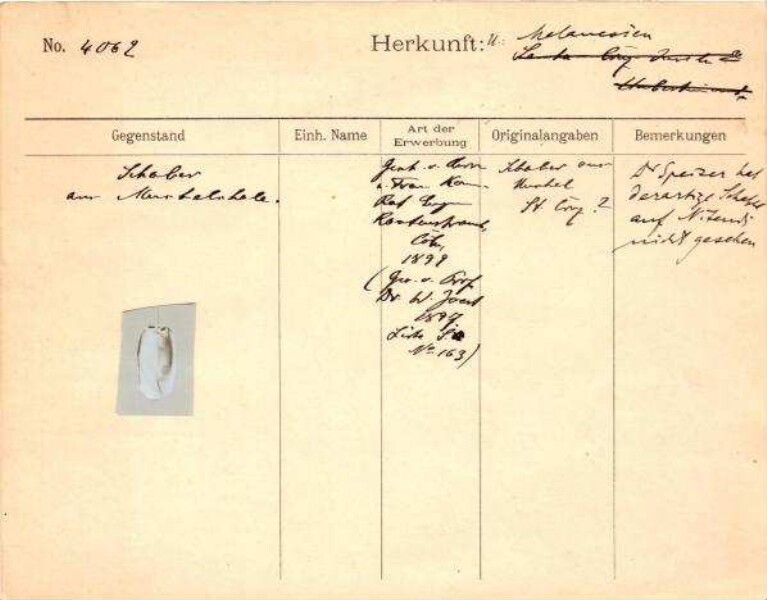 No. 4062
Herkunft: Melanesien
Santa Cruz Inseln
Gegenstand
Einh. Name
Art der Erwerbung
Originalangaben
Bemerkungen
Schaber
aus Muschelschale.
Gesch. v. Herrn
u. Frau Kom.
Rat Eugen
Rautenstrauch,
Cöln,
1899
(Ges. v. Prof.
Dr. W. Joest
1897
Liste
No 163)
Schaber aus
Muschel
St. Cruz?
Dr Speiser hat
derartige Schaber
auf Nitendi
nicht gesehen